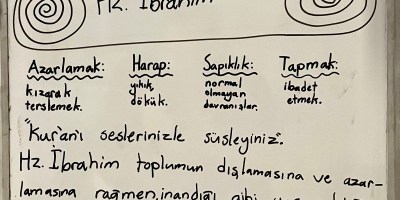 Hz. İbrahim
Azarlamak: Harap: Sapıklık: Tapmak:
kızarak yıkık, normal ibadet
terslemek. dökük. olmayan etmek.
davranışlar.
"Kur'an'ı seslerinizle süsleyiniz".
Hz. İbrahim toplumun dışlamasına ve azar-
lamasına rağmen, inandığı gibi